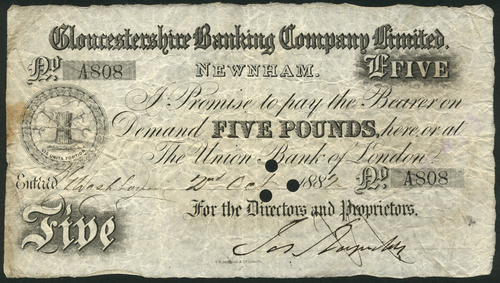 Gloucestershire Banking Company Limited.
No A808 NEWNHAM. £FIVE
I Promise to pay the Bearer on
Demand FIVE POUNDS, here, or at
The Union Bank of London.
Entered 2nd Oct 1882 No A808
For the Directors and Proprietors.
Five